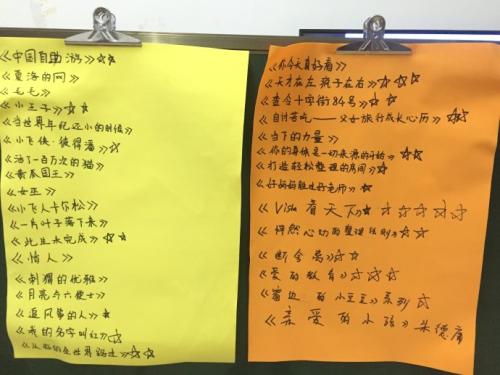 《中国自助游》☆☆
《夏洛的网》
《毛毛》
《小王子》☆☆
《当世界年纪还小的时候》
《小飞侠·彼得潘》☆
《活了一百万次的猫》
《黄瓜国王》
《女巫》
《小飞人卡尔松》
《一片叶子落下来》
《此生未完成》☆☆
《情人》
《刺猬的优雅》
《月亮与六便士》
《追风筝的人》☆
《我的名字叫红》☆
世界
《你今天真好看》
《天才在左 疯子在右》☆☆☆
《查令十字街84号》☆
自讨苦吃——父女旅行成长心历》☆☆
《当下的力量》
《你的身体是一切来源的开始》☆☆
《打造轻松整理的房间》☆☆
《好妈妈胜过好老师》☆
《Vista看天下》☆☆☆☆☆
《怦然心动的整理法则》☆☆
《断舍离》☆☆
《爱的教育》☆☆☆
《窗边的小豆豆》系列☆
《亲爱的小孩》